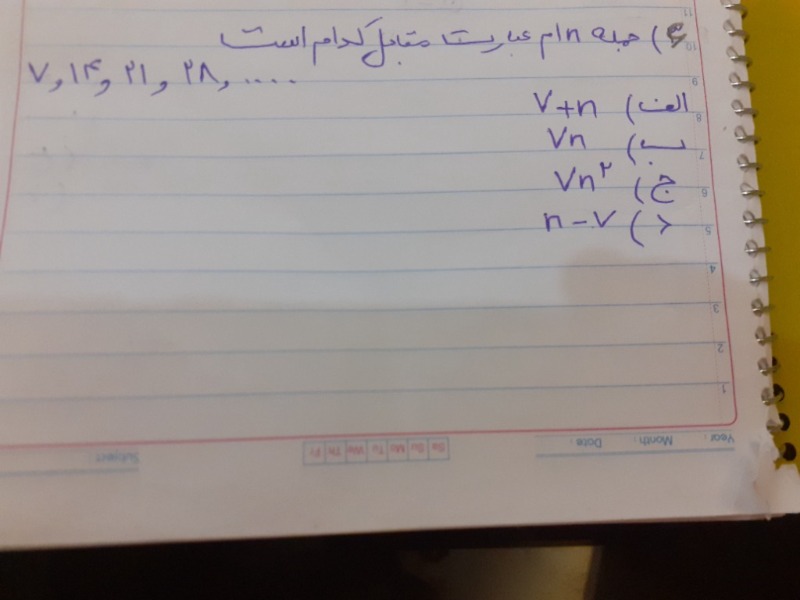 ۶) جمله nام عبارت مقابل کدام است
۷, ۱۴, ۲۱, ۲۸, ....
الف) ۷+n
ب) ۷n
ج) ۷n²
د) n-۷
11
10
9
8
7
6
5
4
3
2
1
Year: Month: Date:
Sa Su Mo Tu We Th Fr
Subject: